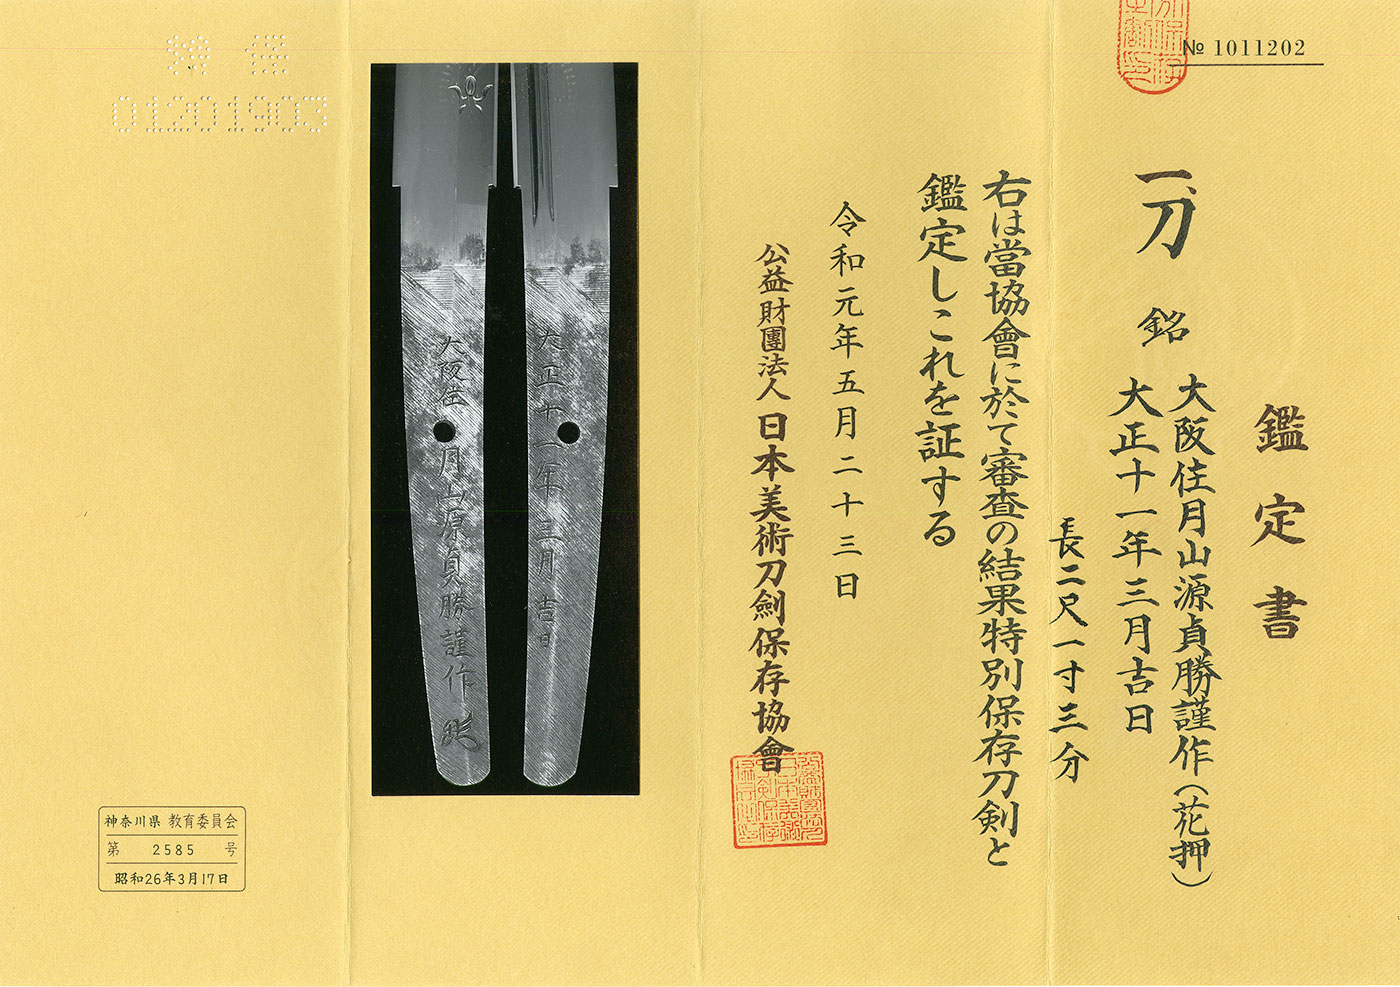 № 1011202
鑑定書
一、刀 銘 大阪住月山源貞勝謹作(花押)
大正十一年三月吉日
長二尺一寸三分
右は當協會に於て審査の結果特別保存刀剣と
鑑定しこれを証する
令和元年五月二十三日
公益財團法人 日本美術刀劍保存協會
大正十一年三月吉日
大阪住月山源貞勝謹作
01201903
神奈川県 教育委員会
第 2585 号
昭和26年3月17日